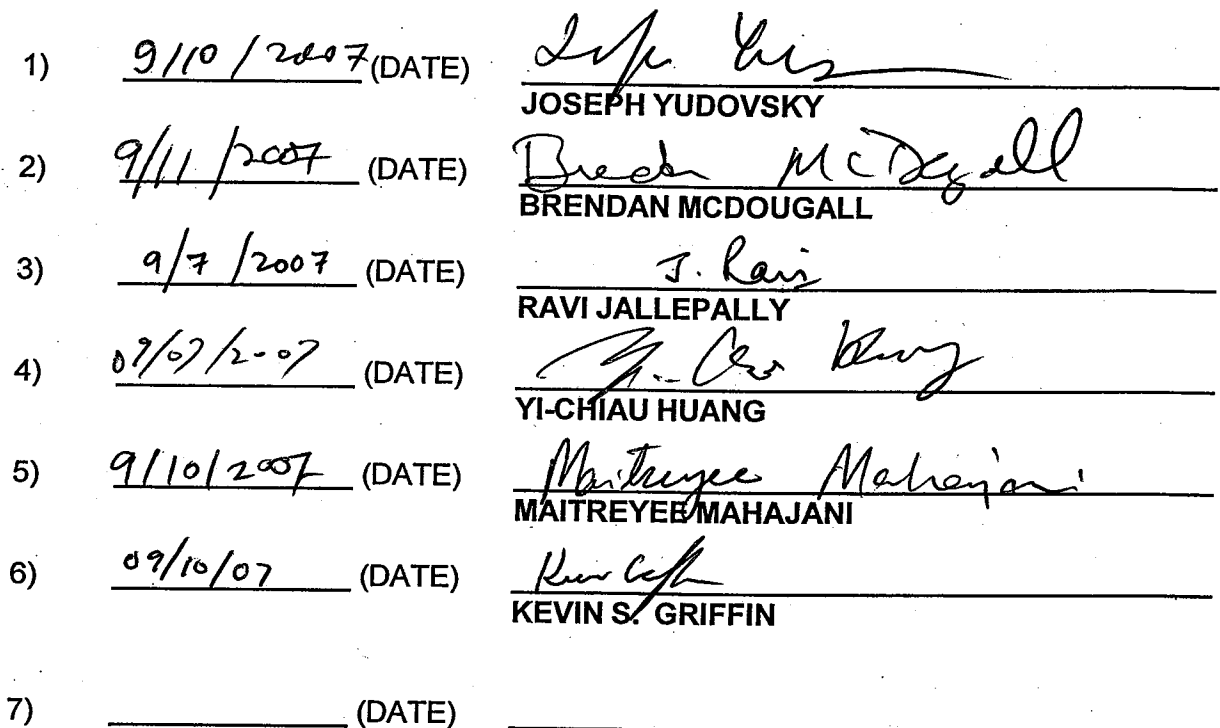 1) 9/10/2007 (DATE)
JOSEPH YUDOVSKY
2) 9/11/2007 (DATE) Brendan McDougall
BRENDAN MCDOUGALL
3) 9/7/2007 (DATE) J. Ravi
RAVI JALLEPALLY
4) 09/07/2007 (DATE)
YI-CHIAU HUANG
5) 9/10/2007 (DATE) Maitreyee Mahajani
MAITREYEE MAHAJANI
6) 09/10/07 (DATE)
KEVIN S. GRIFFIN
7) (DATE)